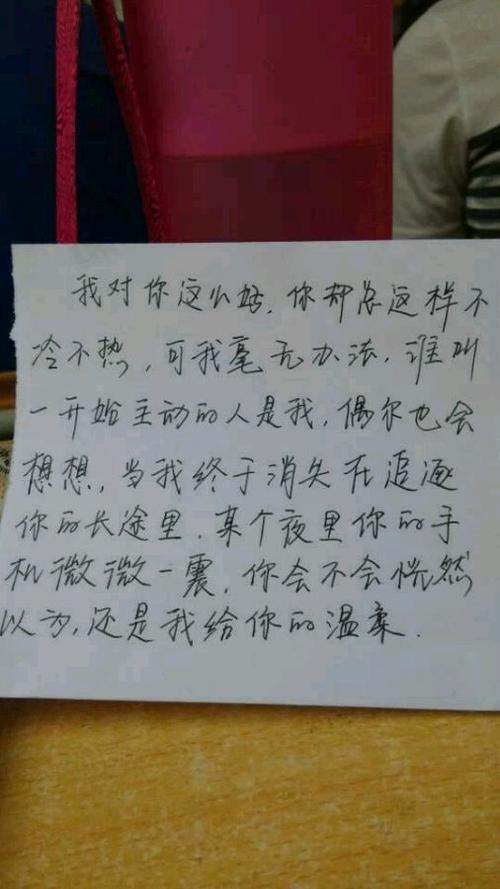 我对你这么好，你却总这样不
冷不热，可我毫无办法，谁叫
一开始主动的人是我，偶尔也会
想想，当我终于消失在追逐
你的长途里，某个夜里你的手
机微微一震，你会不会恍然
以为，还是我给你的温柔.